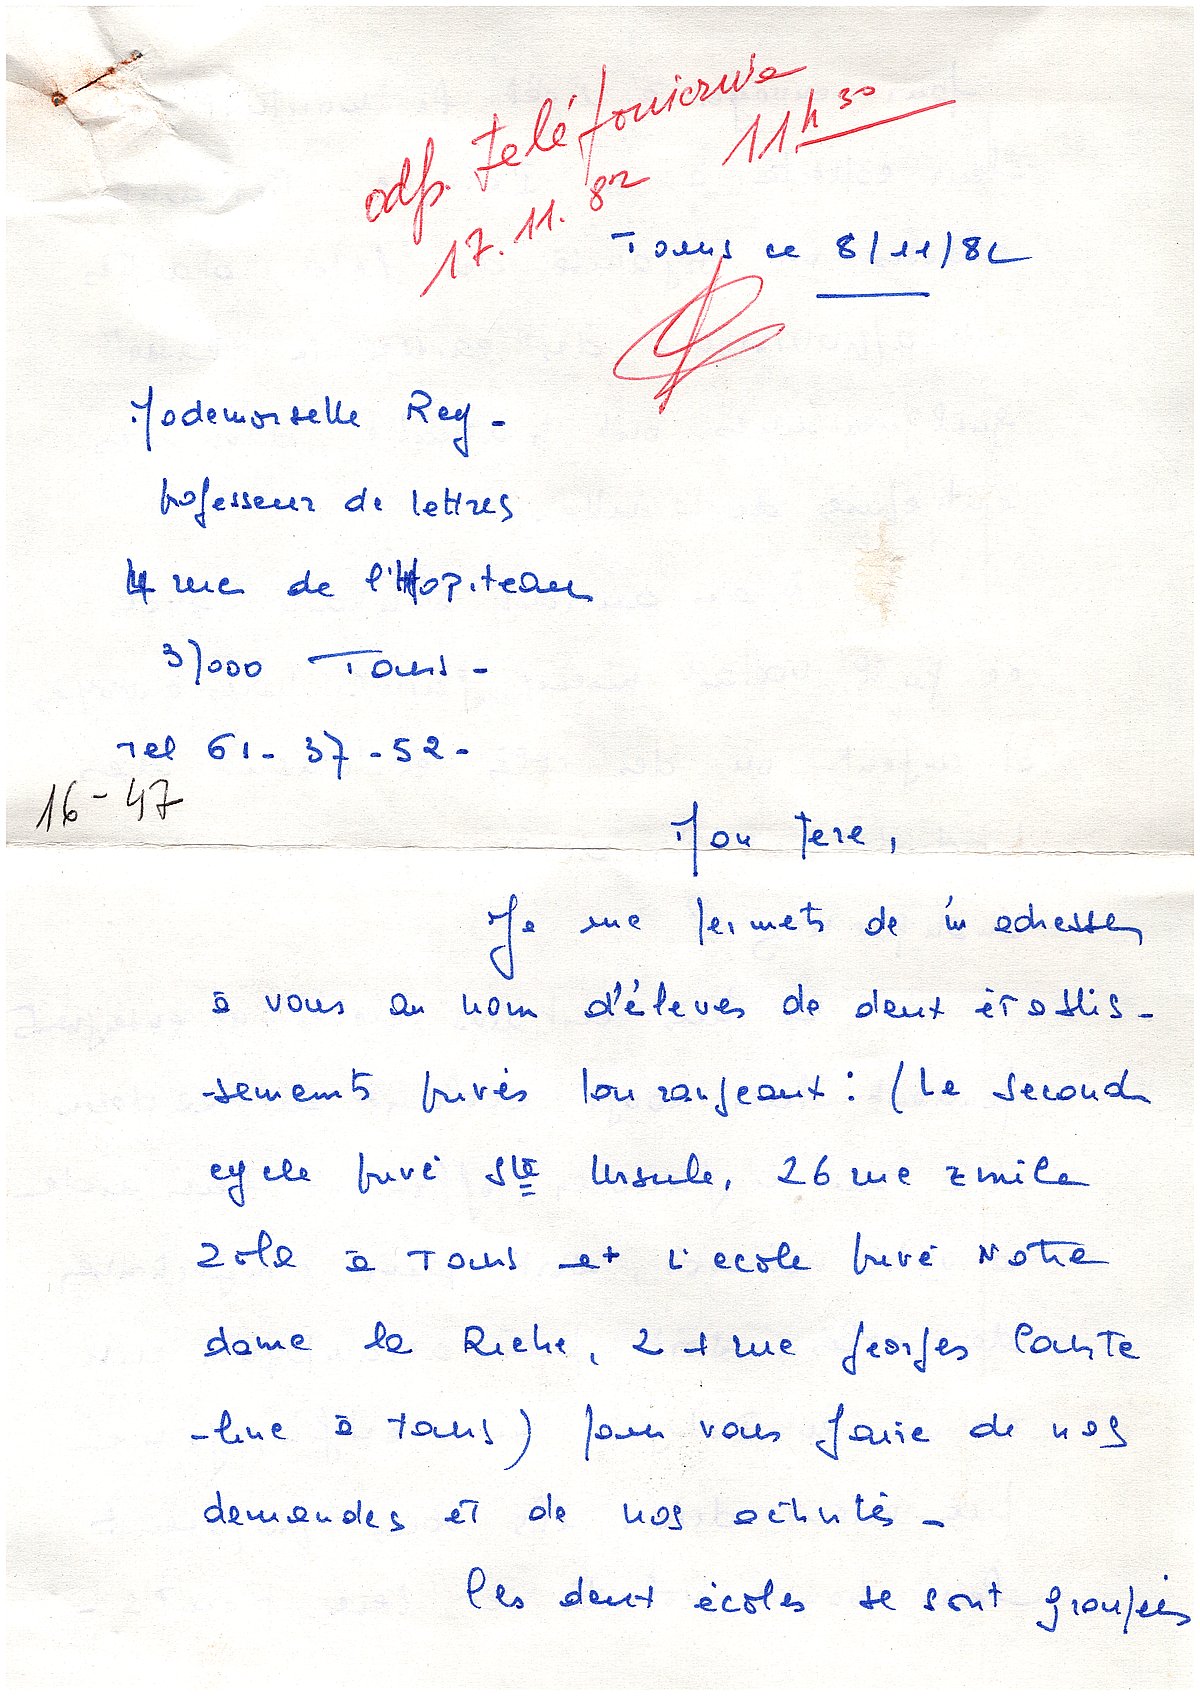 odp. telefoniczna
17.11.82 11h30
Tours ce 8/11/82
Mademoiselle Rey -
professeur de lettres
4 rue de l'Hopiteau
37000 Tours -
Tel 61-37-52-
16-47
Mon Père,
Je me permets de m'adresser
à vous au nom d'élèves de deux établis-
-sements privés tourangeaux : (Le second
cycle privé Ste Ursule, 26 rue Emile
Zola à Tours et l'école privé Notre
dame la Riche, 2 + rue Georges Courte
-line à Tours) pour vous faire de nos
demandes et de nos activités -
Les deux écoles se sont groupées